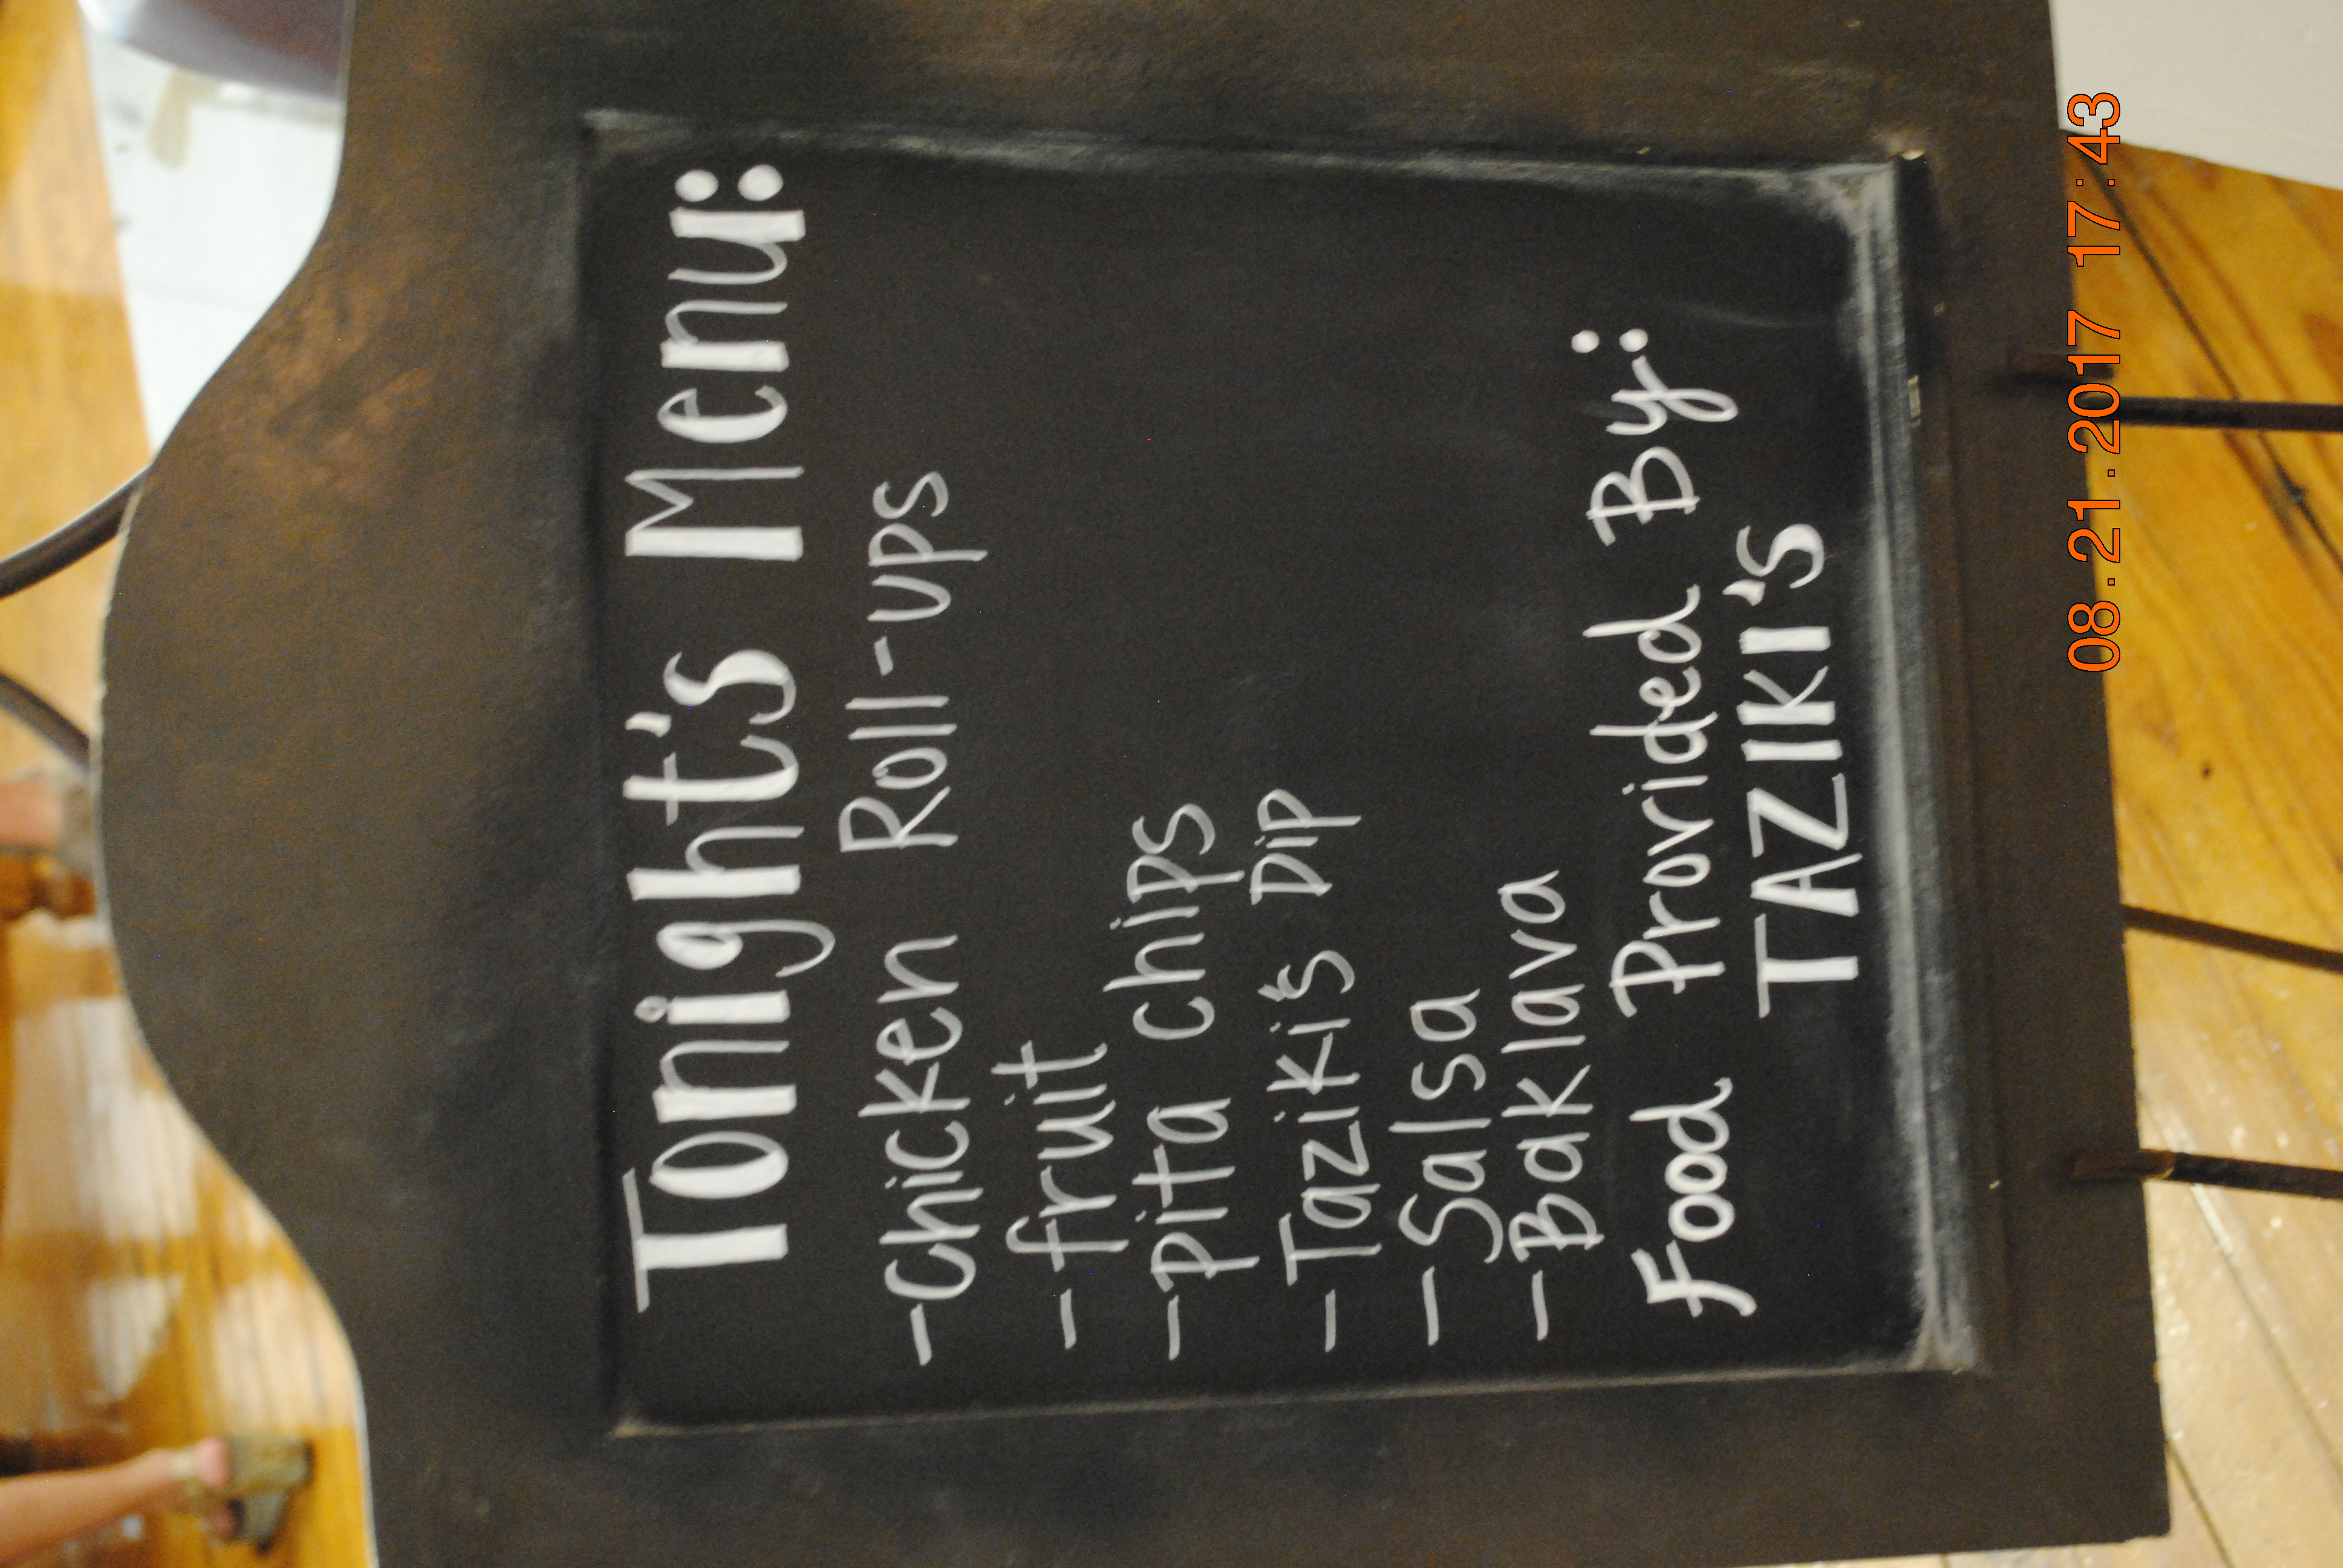 Tonight's Menu:
-Chicken Roll-ups
-fruit
-pita chips
-Taziki's Dip
-Salsa
-Baklava
Food Provided By:
TAZIKI'S
08.21.2017 17:43